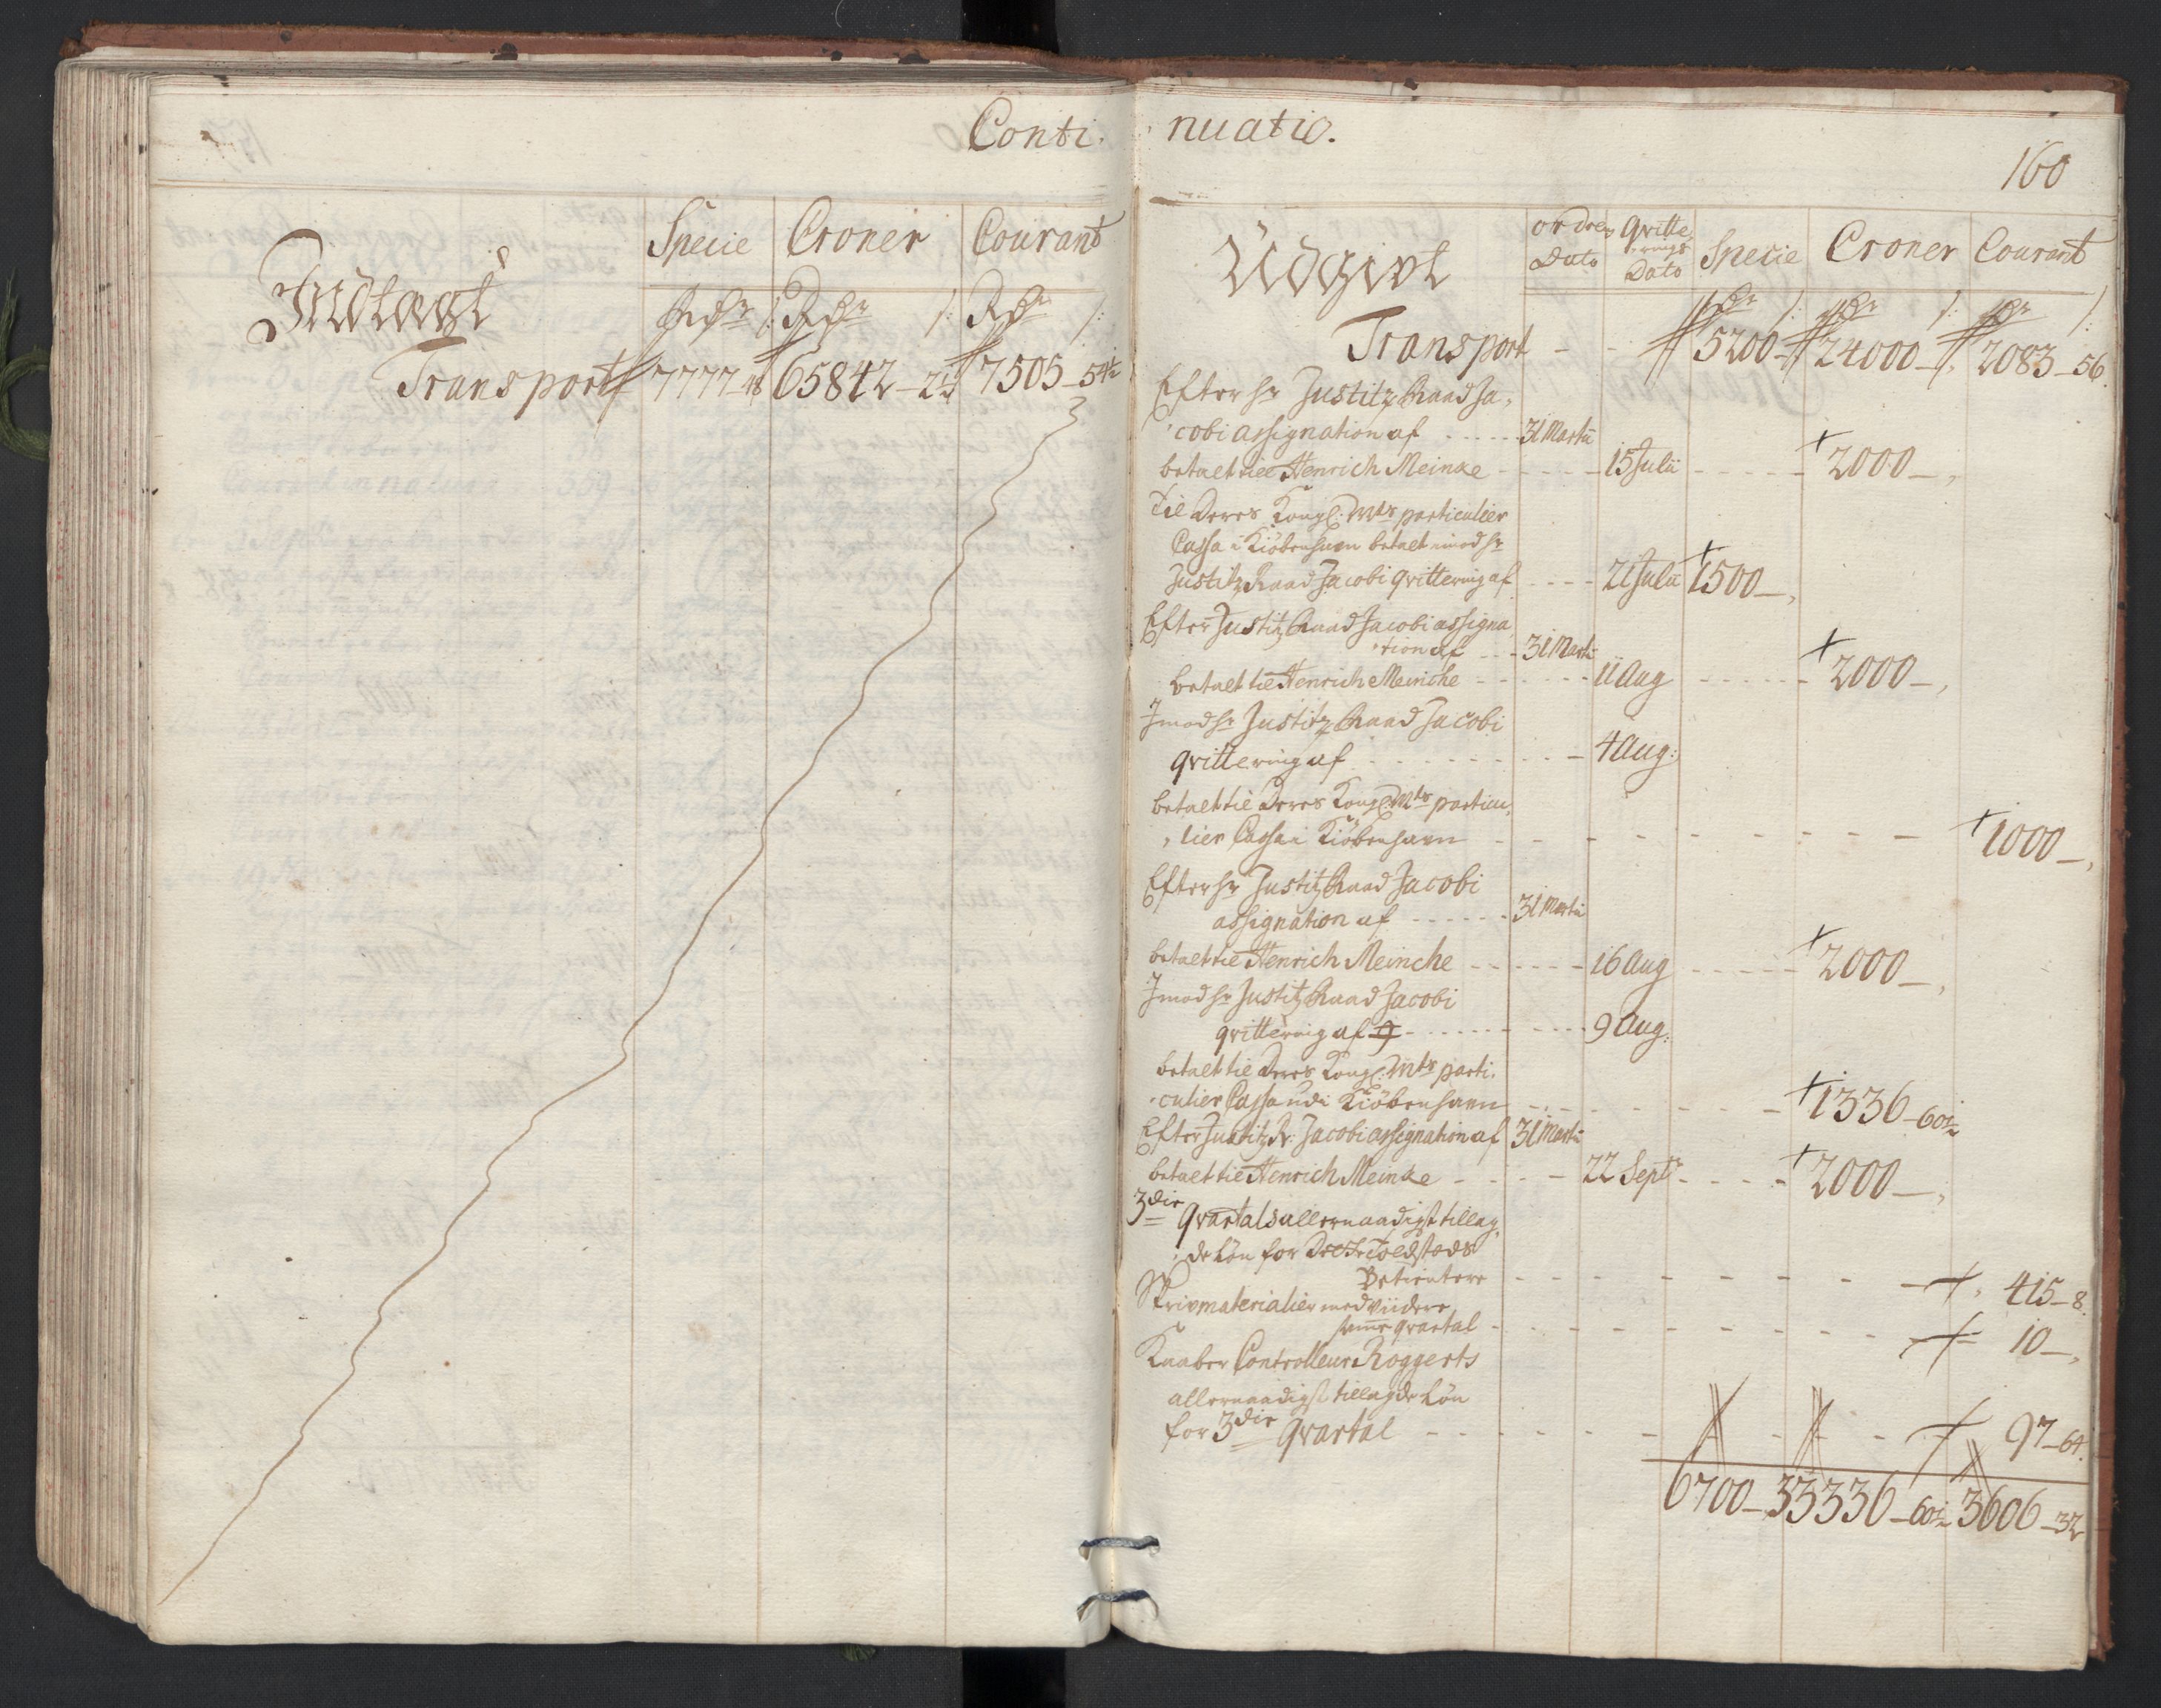 Conti-
Specie Croner Courant
Indtægt
Rdr /: Rdr /: Rdr /:
Transport 7777-48 65842-24 7505-54½
nuatio.
160
Udgivt
ordres Dato
qvitterings Dato
Specie Croner Courant
Rdr /: Rdr /: Rdr /:
Transport - - 5200-, 24000-, 2083-56.
Efter hr Justitz Raad Ja-
cobi assignation af ----- 31 Martii
betalt til Henrich Meinke ----- 15 Julii ----- 2000-,
Til Deres Kongl. Mts particulier
Cassa i Kiöbenhavn betalt imod hr
Justitz Raad Jacobi qvittering af ---- 21 Julii 1500-,
Efter Justitz Raad Jacobi assigna
tion af --- 31 Martii
betalt til Henrich Meinche ------ 11 Aug ------ 2000-,
Imod hr Justitz Raad Jacobi
qvittering af -------- 4 Aug:
betalt til Deres Kongl. Mts particu-
lier Cassa i Kiöbenhavn - - - - - - - - 1000-,
Efter hr Justitz Raad Jacobi
assignation af ------ 31 Martii
betalt til Henrich Meinche ------ 16 Aug ----- 2000-,
Imod hr Justitz Raad Jacobi
qvittering af 9 --------- 9 Aug:
betalt til Deres Kongl. Mts parti-
culier Cassa udi Kiöbenhavn - - - - - - - 1336-60½
Efter Justitz R: Jacobi assignation af 31 Martii
betalt til Henrich Meinke - - - - 22 Septr - - - - 2000-,
3die Qvartals allernaadigst tillag-
de Lön for Toldstæds
Betientere - - - - - - - - 415-8.
Skrivmaterialier med viidere
samme qvartal - - - - - - - - - 10-,
Knaber Controlleur Roggerts
allernaadigst tillagde Lön
for 3die qvartal - - - - - - - - - 97-64.
6700- 33336-60½ 3606-32